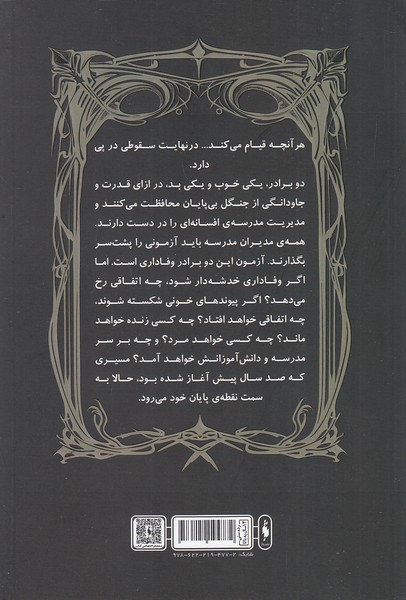 هر آنچه قیام می‌کند... درنهایت سقوطی در پی
دارد.
دو برادر، یکی خوب و یکی بد، در ازای قدرت و
جاودانگی از جنگل بی‌پایان محافظت می‌کنند و
مدیریت مدرسه‌ی افسانه‌ای را در دست دارند.
همه‌ی مدیران مدرسه باید آزمونی را پشت‌سر
بگذارند. آزمون این دو برادر وفاداری است. اما
اگر وفاداری خدشه‌دار شود، چه اتفاقی رخ
می‌دهد؟ اگر پیوندهای خونی شکسته شوند،
چه اتفاقی خواهد افتاد؟ چه کسی زنده خواهد
ماند؟ چه کسی خواهد مرد؟ و چه بر سر
مدرسه و دانش‌آموزانش خواهد آمد؟ مسیری
که صد سال پیش آغاز شده بود، حالا به
سمت نقطه‌ی پایان خود می‌رود.
شابک: ۹۷۸-۶۲۲-۲۱۹-۴۷۷-۲